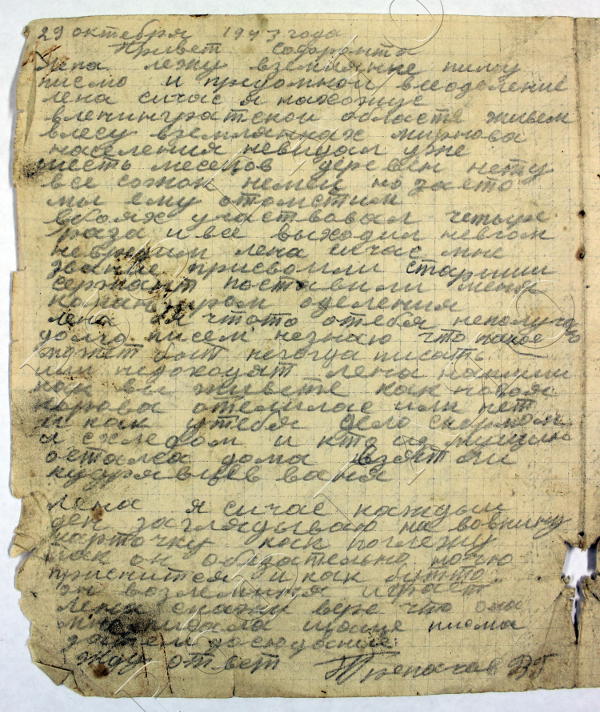 29 октября 1943 года
Привет софронта
лена лежу вземлянке пишу
писмо и придомной вседоление
лена сичас я нахожус
вленинградской области живем
влесу вземлянках мирнова
населения невидал уже
шесть месецов деревен нету
все сожог немец но заето
мы ему отомстим
вбоях участвовал четыре
раза и все выходил невгом
невредим лена сичас мне
звание присвоили старший
сержант поставили меня
командиром оделения
лена я чтото отебя неполучаю
долго писем незнаю что такое
может быт некогда писать
или недоходят лена напиши
как вы живете как новая
корова отелилас или нет
и как утебя дело скормом
и схлебом и кто из мущин
остался дома взят ли
кудрявцев ваня
лена я сичас каждый
ден заглядываю на вовкину
карточку как погляжу
так он обязательно ночю
приснится и как бутто
он возлеминя играет
лена скажи вере что она
мне писала пишие писма
затем досюдание
жду ответ